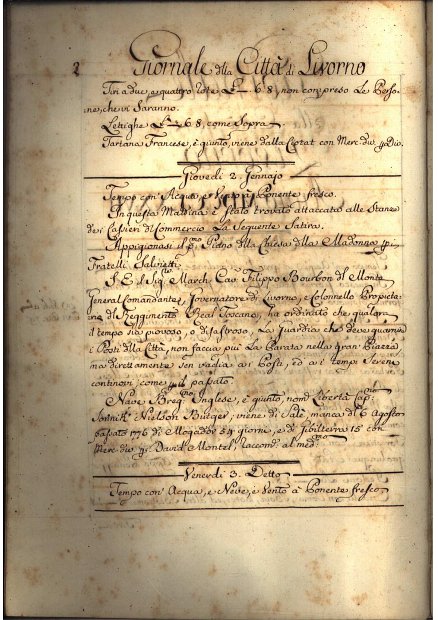 2 Giornale dlla Città di Livorno
Tiri a due, e quattro rote £ — 6 8, non compreso Le Perso=
ne, che vi Saranno.
Lettighe £ — 6 8, come Sopra
Tartana Francese, è giunto, viene dalla Ciotat con Merc: div:
Giovedi 2. Gennajo
Tempo con' Acqua, e Venti Ponente fresco.
In questa Mattina è stato trovato attaccato alle Stanze
de i Casseri di Commercio La Seguente Satira.
Appigionasi il Piano della Chiesa dlla Madonna
Fratelli
S. E. il Sig.re March: Cav: Filippo Bourbon dl Monte
General Comandante, Governatore di Livorno, e Colonnello Proprieta=
rio dl Reggimento Real Toscano, ha ordinato che qualora
il tempo sia piovoso, o disastroso, La Guardia che deve guarnire
i Posti dlla Città, non faccia più La Parata nella Gran Piazza
ma direttamente sen vadia a i Posti, ed a i tempi Sereni
continovi, come pel passato.
Nave Brig: Inglese, è giunto, nom: Libertà Cap:
Nielson Burger, viene di Salè, manca dl 6 Agosto
passato 1776 di Mogador 54 giorni, e di Gibilterra 15 con
Merc: div: David Montel, raccom: al med:mo
Venerdi 3. Detto
Tempo con' Acqua, e Neve, e Vento à Ponente fresco